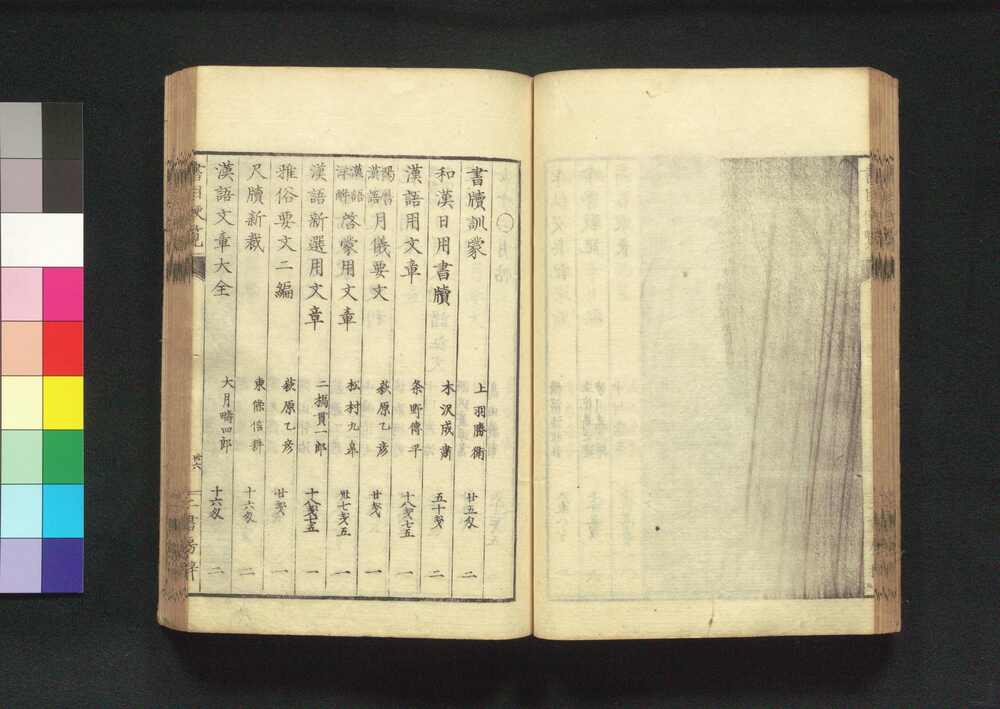 書牘訓蒙 上羽勝衛 廿五匁 二
和漢日用書牘 木沢成粛 五十匁 二
漢語用文章 条野傳平 十八匁七五 一
陽暦漢語月儀要文 萩原乙彦 廿匁 一
漢語詳解啓蒙用文章 松村九皐 卅七匁五 一
漢語新選用文章 二橋貫一郎 十八匁七五 一
雅俗要文二編 萩原乙彦 廿匁 一
尺牘新裁 東條信耕 十六匁 二
漢語文章大全 大月疇四郎 十六匁 二
書目便覧 卅六 二書房梓